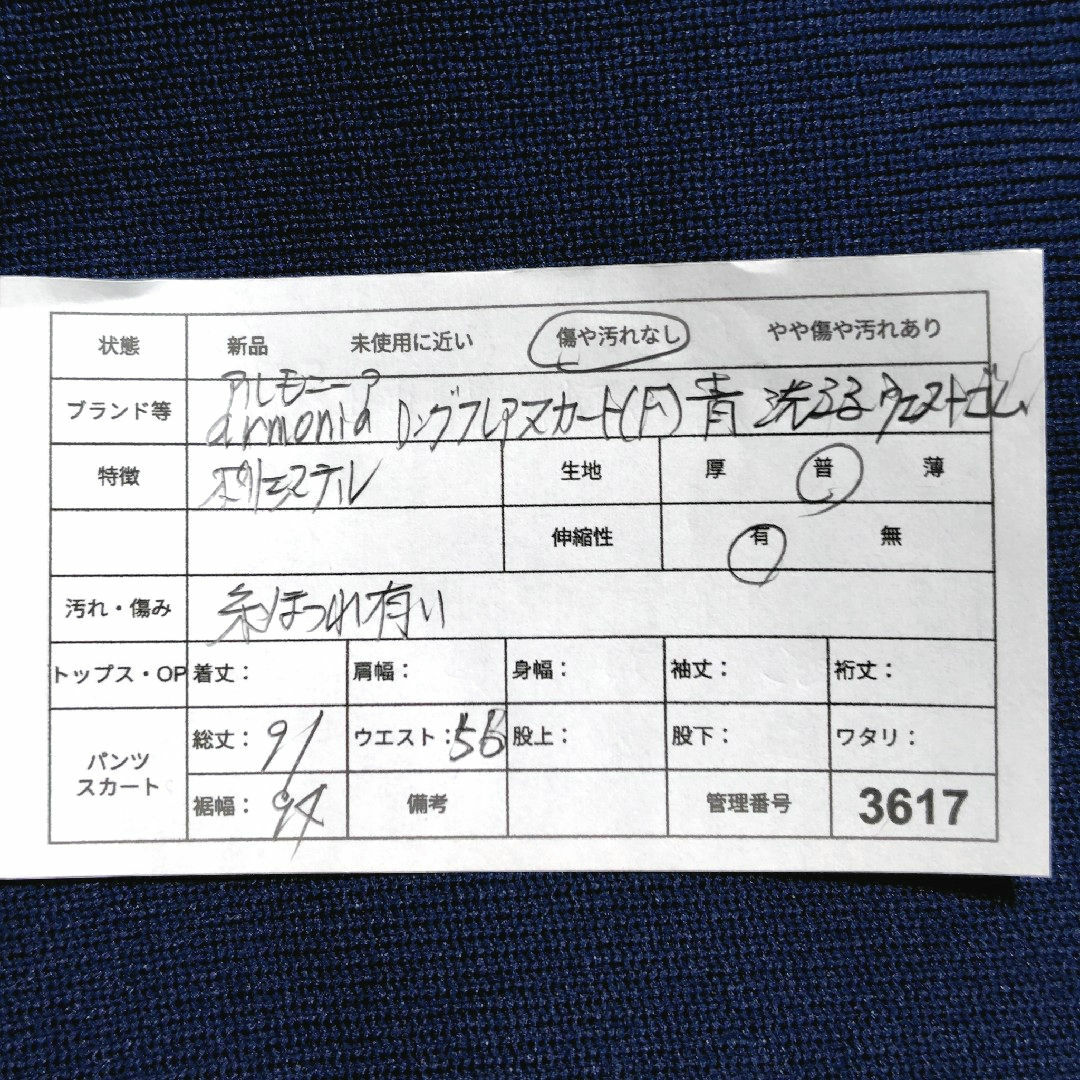 状態 新品 未使用に近い 傷や汚れなし やや傷や汚れあり
アルモニーア
ブランド等 armonia ロングフレアスカート(F) 青 洗える ウエストゴム
特徴 ポリエステル 生地 厚 普 薄
伸縮性 有 無
汚れ・傷み 糸ほつれ有り
トップス・OP 着丈: 肩幅: 身幅: 袖丈: 裄丈:
パンツ スカート 総丈:91 ウエスト:56 股上: 股下: ワタリ:
裾幅:94 備考 管理番号 3617